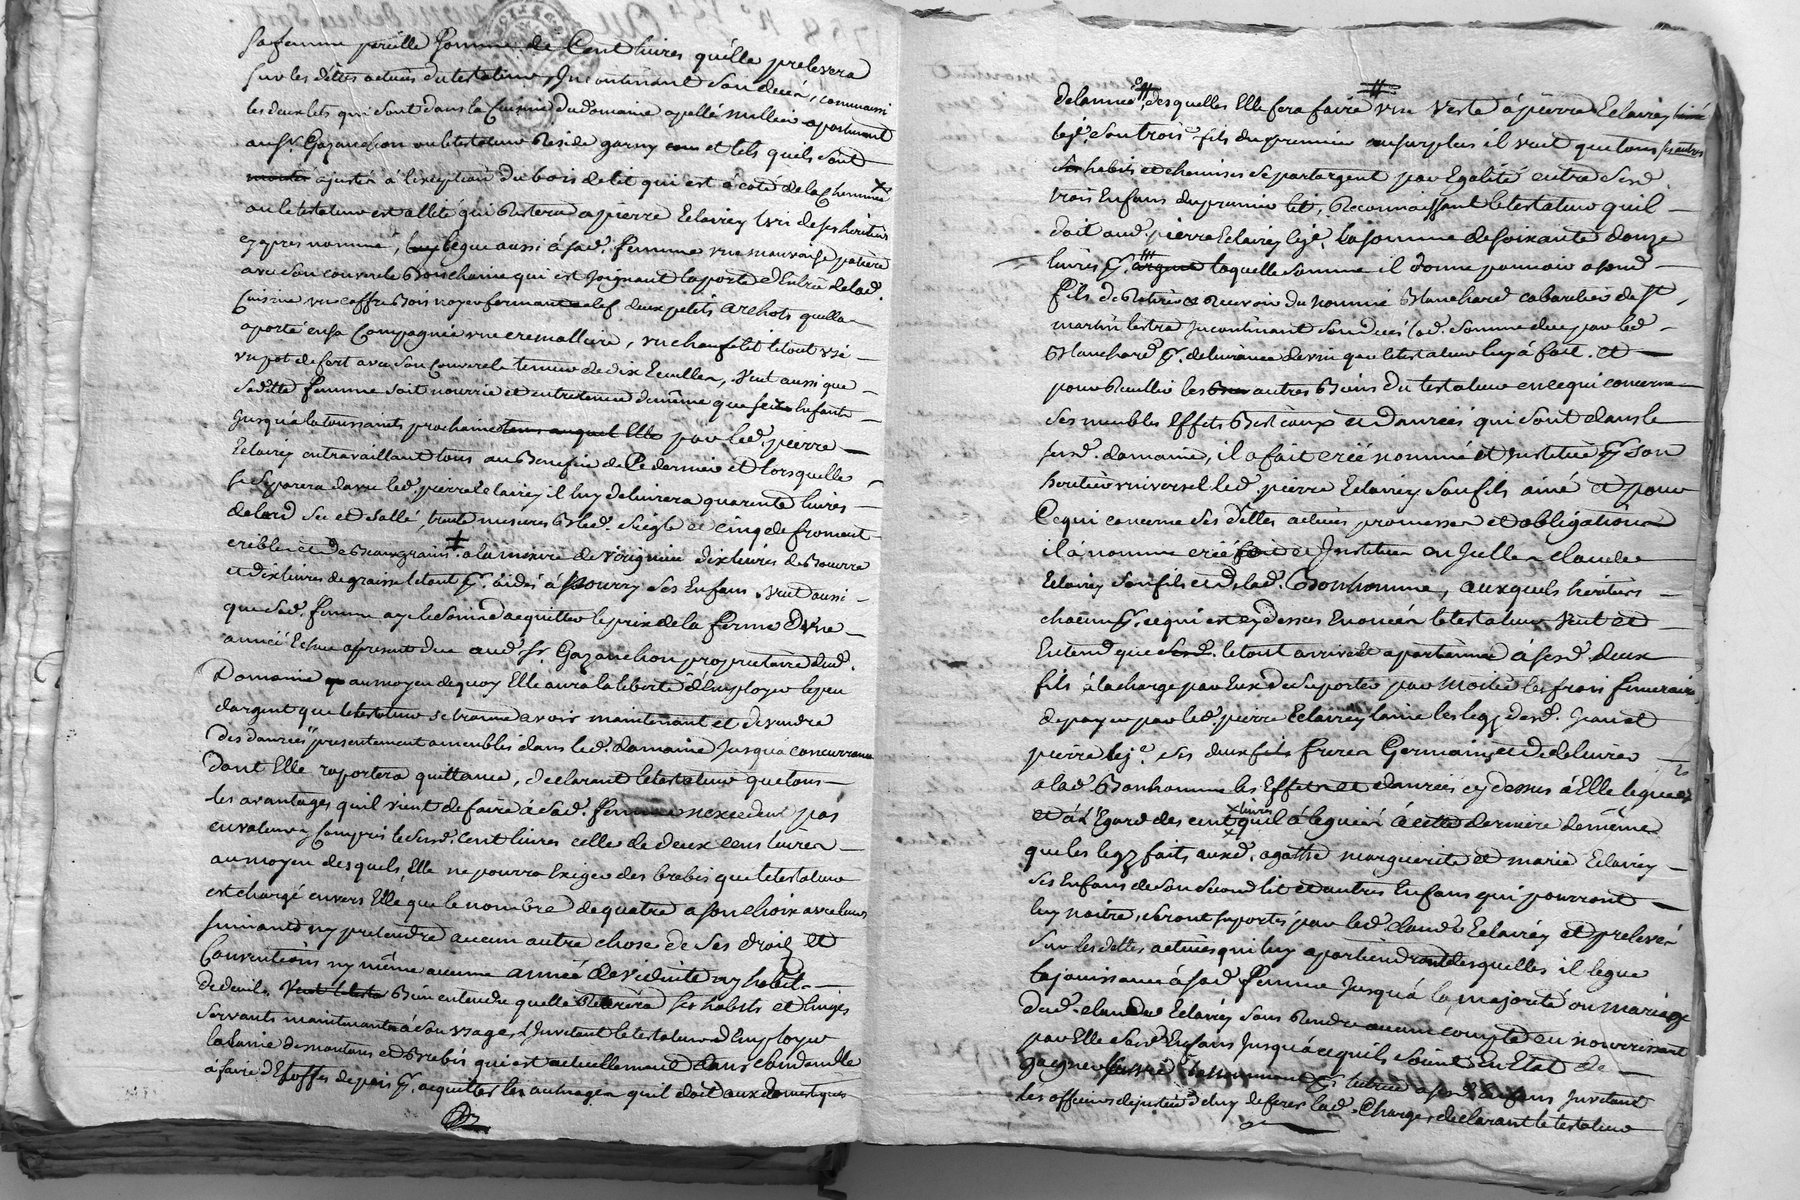 sa femme pareille somme de Cent livres qu'elle prelevera
sur les dittes actives du testateur, Incontinant son decés, comm'aussi
les deux lits qui sont dans la Cuisine du domaine apellé millier apartenant
au Sr. Gazanchon ou le testateur Reside garny et tels quils sont
ajustés à l'exeption du bois de lit qui est a coté de la Cheminée
ou le testateur est allité qui Restera a pierre Eclairey l'un de ses heritiers
cy apres nommé, legue aussi à sad. femme une mauvaise patiere
avec son couvercle Bois chaine qui est joignant la porte d'Entrée de lad.
Cuisine un coffre Bois noyer fermant a clef deux petits archots quella
aporté en sa Compagnie une cremalliere, un chaufelit le tout usé
un pot de fert avec son couvercle teneur de dix Ecuelles, Veut aussi que
Saditte femme soit nourrie et entretenue de même que ses Enfants
Jusqu'a la toussaints prochaine tems auquel Elle par led. pierre
Eclairey en travaillant tous au Benefice de Ce dernier et lorsquelle
se Separera davec led. pierre Eclairey il luy delivrera quarente livres
de lard sec et sallé, trente mesures Bled. Seigle et cinq de froment
cribles et de Beaux grains a la mesure de dix livres de Beurre
et dix livres de graisse le tout pr. aider à Nourrir ses Enfans. Veut aussi
que sad. femme aye le soin d'acquitter le prix de la ferme d'une
année Echue apresent due aud. Sr. Gazanchon propriétaire dud.
Domaine au moyen de quoy Elle aura la liberté d'Employer le peu
d'argent que le testateur se trouve avoir maintenant et de vendre
des danrées presentement ameublés dans led. domaine Jusqu'a concurrance
Dont Elle raportera quittance, declarant le testateur que tous
les avantages quil vient de faire à sad. femme n'excedent pas
en valeur y Compris le susd. Cent livres celle de deux cens livres
au moyen desquels, Elle ne pourra Exiger des brebis que le testateur
est chargé envers Elle que le nombre de quatre a son choix avec leurs
suivants ny pretendre aucun autre chose de ses droits et
Conventions ny même aucune année de viduité ny habit
de deuil. Bien entendu quelle Retirera ses habits et linges
servants maintenants à son usage, Invitant le testateur d'Employer
la laine de moutons et Brebis qui est actuellement dans
à faire d'Etoffes de pais pr. acquitter les aumages quil doit aux domestiques
de lannée, desquelles Elle fera faire une Veste à pierre Eclairey
lejé. son trois. fils du premier au surplus il veut que tous ses autres
habits et chemises se partargent par Egalité entre sesd.
trois Enfans du premier lit, Reconnaissant le testateur quil
doit aud. pierre Eclairey lejé. la somme de soixante douze
livres pr. argent laquelle somme il donne pouvoir a sond.
fils de Retirer et Recevoir du nommé Blanchard cabaretier de St.
martin lestra Incontinant son decés lad. somme due par led.
Blanchard pr. delivrance de vin que le testateur luy à fait. et
pour Reuillir les autres Biens du testateur en ce qui concerne
ses meubles Effets Bestiaux et danrées qui sont dans le
susd. domaine, il a fait créé nommé et Institué pr. son
heritier universel led. pierre Eclairey son fils ainé et pour
Ce qui concerne ses dettes actives promesses et obligations
il à nommé créé et Institué Claude
Eclairey son fils et de lad. Bonhomme, auxquels heritiers
chacun pr. ce qui est cy dessus Enoncés le testateur Veut et
Entend que le tout arrive et apartienne à sesd. deux
fils à la charge par Eux de suporter par moitié les frais funeraires
de payer par led. pierre Eclairey laine les legs desd. Jean et
pierre lejé. ses deux fils freres Germains et de delivrer
a lad. Bonhomme les Effets et danrées cy dessus à Elle legués
et à l'Egard des cent livres quil à legués à cette derniere de même
que les legs faits auxd. agathe marguerite et marie Eclairey
ses Enfans de son second lit et autres Enfans qui pourront
luy naitre, seront suportés par led. claude Eclairey et prelevés
sur les dettes actives qui luy apartiendront desquelles il legue
la jouissance à sad. femme Jusqu'à la majorité ou mariage
dud. claude Eclairey sans Rendre aucun compte en nourrissant
par Elle sesd. Enfans Jusqu'à ce quils soient En Etat de
gagner a sesd. Enfans Invitant
les officiers de justice de luy deferer lad. Charge, declarant le testateur